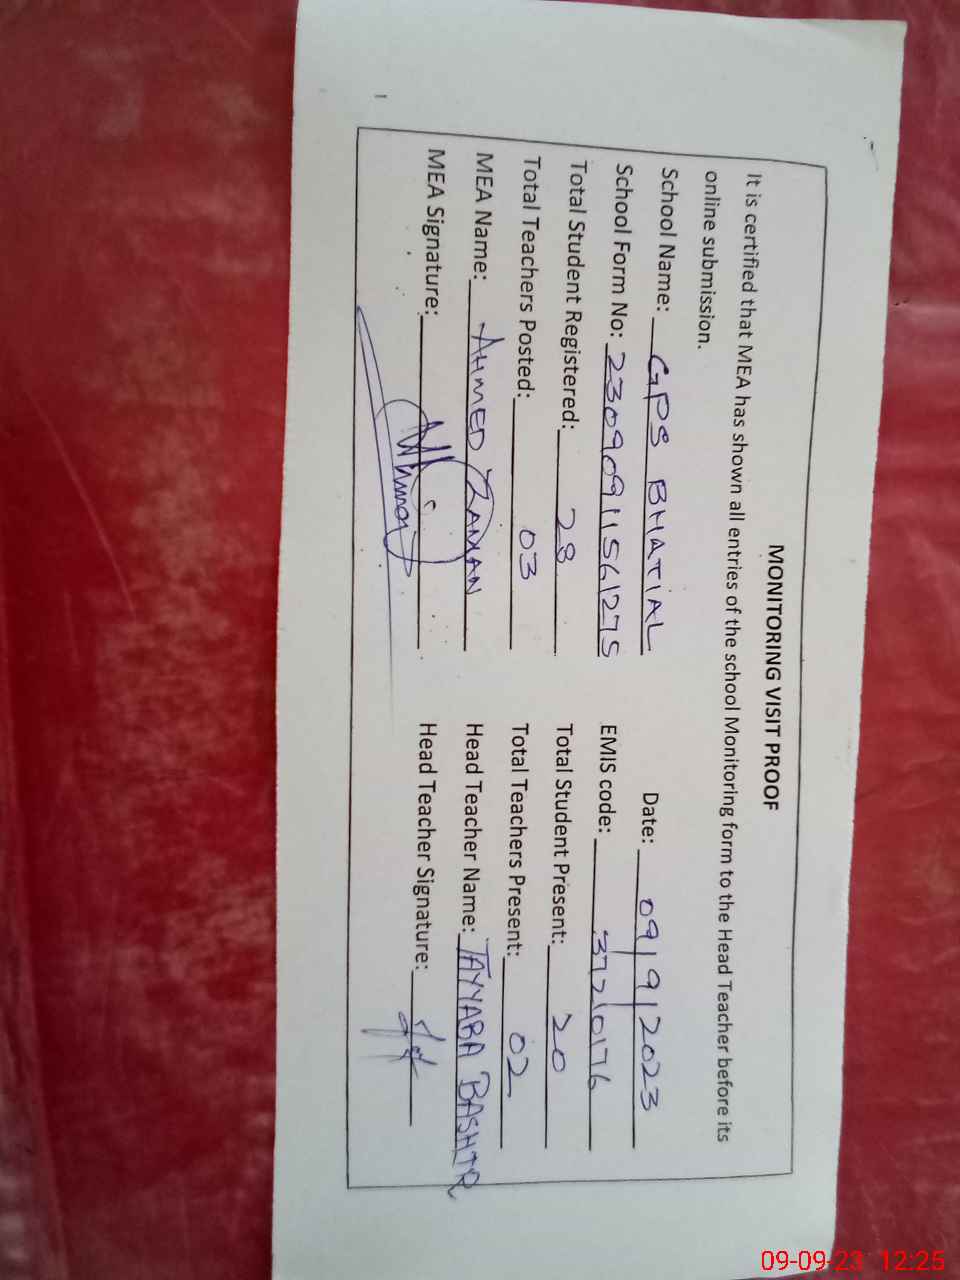 MONITORING VISIT PROOF
It is certified that MEA has shown all entries of the school Monitoring form to the Head Teacher before its
online submission.
School Name: GPS BHATIAL Date: 09/9/2023
School Form No: 23090911561275 EMIS code: 37210176
Total Student Registered: 28 Total Student Present: 20
Total Teachers Posted: 03 Total Teachers Present: 02
MEA Name: AHMED ZAMAN Head Teacher Name: TAYYABA BASHIR
MEA Signature: Head Teacher Signature:
09-09-23 12:25